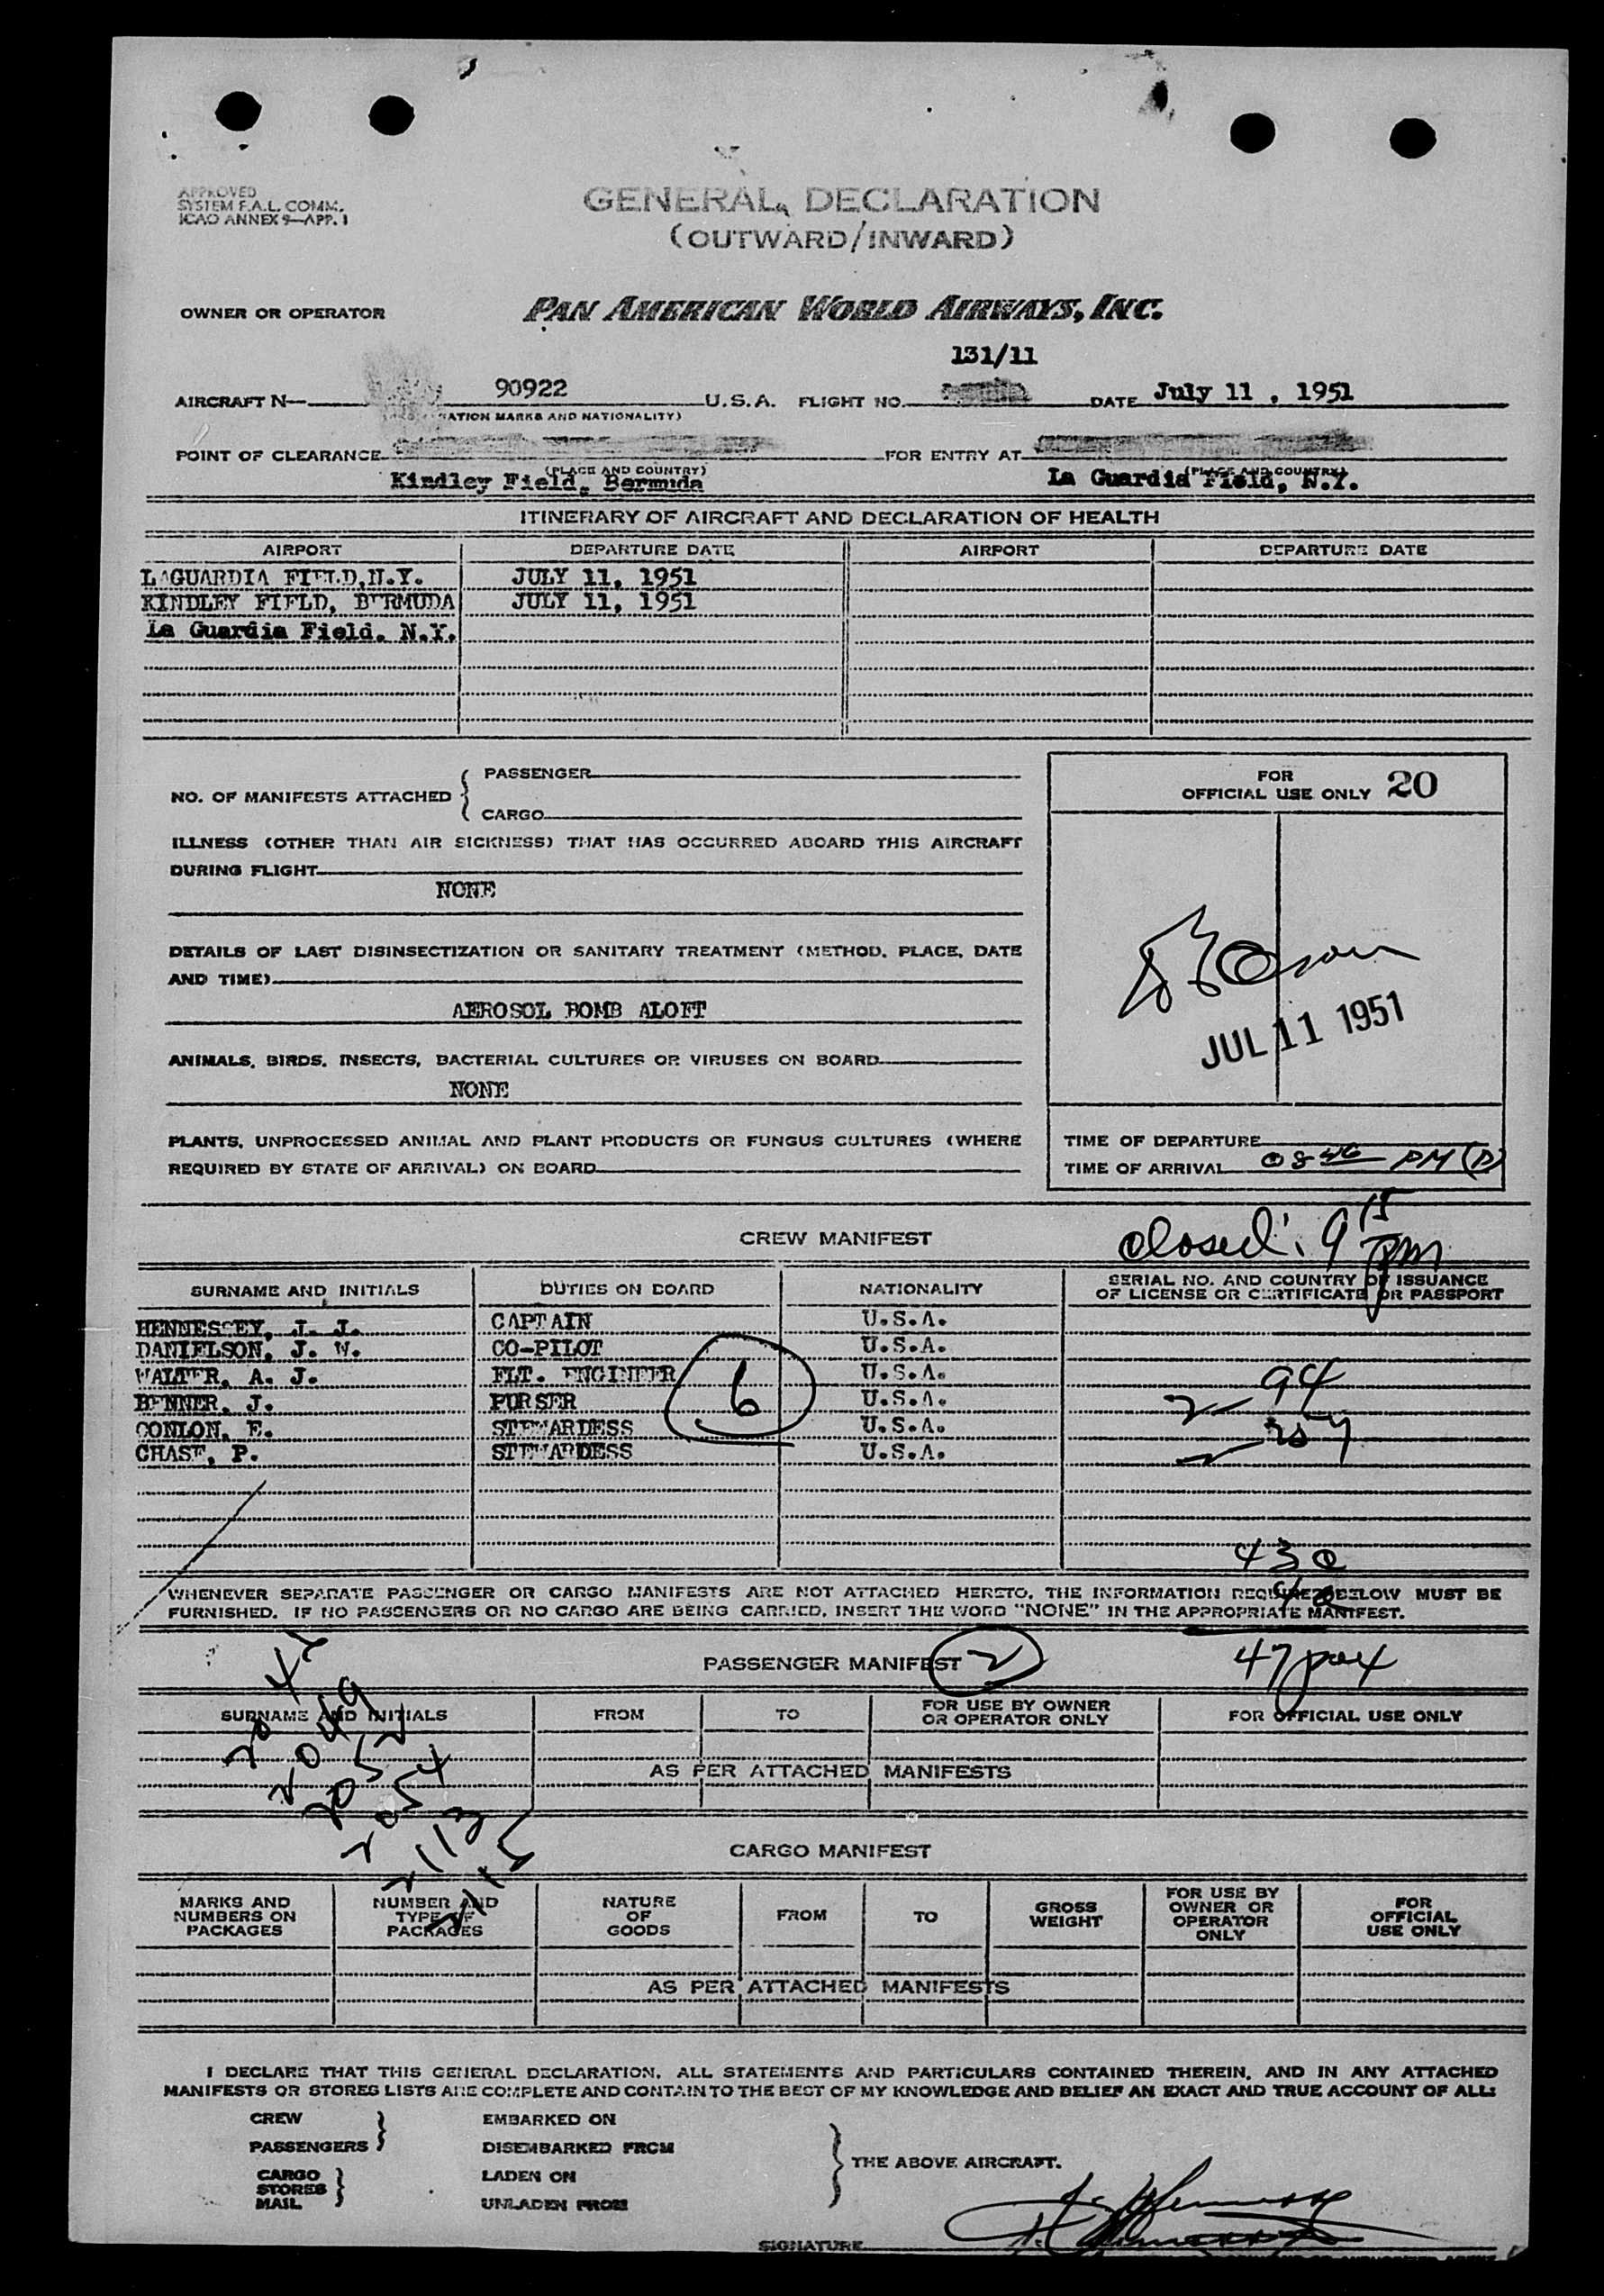 APPROVED
SYSTEM F.A.L. COMM.
ICAO ANNEX 9—APP. 1
GENERAL DECLARATION
(OUTWARD/INWARD)
OWNER OR OPERATOR PAN AMERICAN WORLD AIRWAYS, INC.
131/11
AIRCRAFT N— 90922 U.S.A. FLIGHT NO. DATE July 11, 1951
MARKS AND NATIONALITY)
POINT OF CLEARANCE FOR ENTRY AT
(PLACE AND COUNTRY) (PLACE AND COUNTRY)
Kindley Field, Bermuda La Guardia Field, N.Y.
ITINERARY OF AIRCRAFT AND DECLARATION OF HEALTH
AIRPORT DEPARTURE DATE AIRPORT DEPARTURE DATE
LAGUARDIA FIELD, N.Y. JULY 11, 1951
KINDLEY FIELD, BERMUDA JULY 11, 1951
La Guardia Field. N.Y.
NO. OF MANIFESTS ATTACHED { PASSENGER
CARGO
FOR
OFFICIAL USE ONLY 20
ILLNESS (OTHER THAN AIR SICKNESS) THAT HAS OCCURRED ABOARD THIS AIRCRAFT
DURING FLIGHT
NONE
DETAILS OF LAST DISINSECTIZATION OR SANITARY TREATMENT (METHOD, PLACE, DATE
AND TIME)
AEROSOL BOMB ALOFT
JUL 11 1951
ANIMALS, BIRDS, INSECTS, BACTERIAL CULTURES OR VIRUSES ON BOARD
NONE
PLANTS, UNPROCESSED ANIMAL AND PLANT PRODUCTS OR FUNGUS CULTURES (WHERE
REQUIRED BY STATE OF ARRIVAL) ON BOARD
TIME OF DEPARTURE
TIME OF ARRIVAL 08 46 PM
closed: 9 15 pm
CREW MANIFEST
SURNAME AND INITIALS DUTIES ON BOARD NATIONALITY SERIAL NO. AND COUNTRY OF ISSUANCE
OF LICENSE OR CERTIFICATE OR PASSPORT
HENNESSEY, J. J. CAPTAIN U.S.A.
DANIELSON, J. W. CO-PILOT U.S.A.
WALTER, A. J. FLT. ENGINEER U.S.A.
BENNER, J. PURSER 6 U.S.A.
CONLON, E. STEWARDESS U.S.A.
CHASE, P. STEWARDESS U.S.A.
WHENEVER SEPARATE PASSENGER OR CARGO MANIFESTS ARE NOT ATTACHED HERETO, THE INFORMATION REQUIRED BELOW MUST BE
FURNISHED. IF NO PASSENGERS OR NO CARGO ARE BEING CARRIED, INSERT THE WORD "NONE" IN THE APPROPRIATE MANIFEST.
PASSENGER MANIFEST 2 47 pax
SURNAME AND INITIALS FROM TO FOR USE BY OWNER
OR OPERATOR ONLY FOR OFFICIAL USE ONLY
2049
2052
2054
2113
2115
AS PER ATTACHED MANIFESTS
CARGO MANIFEST
MARKS AND
NUMBERS ON
PACKAGES
NUMBER AND
TYPE OF
PACKAGES
NATURE
OF
GOODS
FROM
TO
GROSS
WEIGHT
FOR USE BY
OWNER OR
OPERATOR
ONLY
FOR
OFFICIAL
USE ONLY
AS PER ATTACHED MANIFESTS
I DECLARE THAT THIS GENERAL DECLARATION, ALL STATEMENTS AND PARTICULARS CONTAINED THEREIN, AND IN ANY ATTACHED
MANIFESTS OR STORES LISTS ARE COMPLETE AND CONTAIN TO THE BEST OF MY KNOWLEDGE AND BELIEF AN EXACT AND TRUE ACCOUNT OF ALL:
CREW
PASSENGERS }
EMBARKED ON
DISEMBARKED FROM
CARGO
STORES
MAIL }
LADEN ON
UNLADEN FROM
} THE ABOVE AIRCRAFT.
SIGNATURE